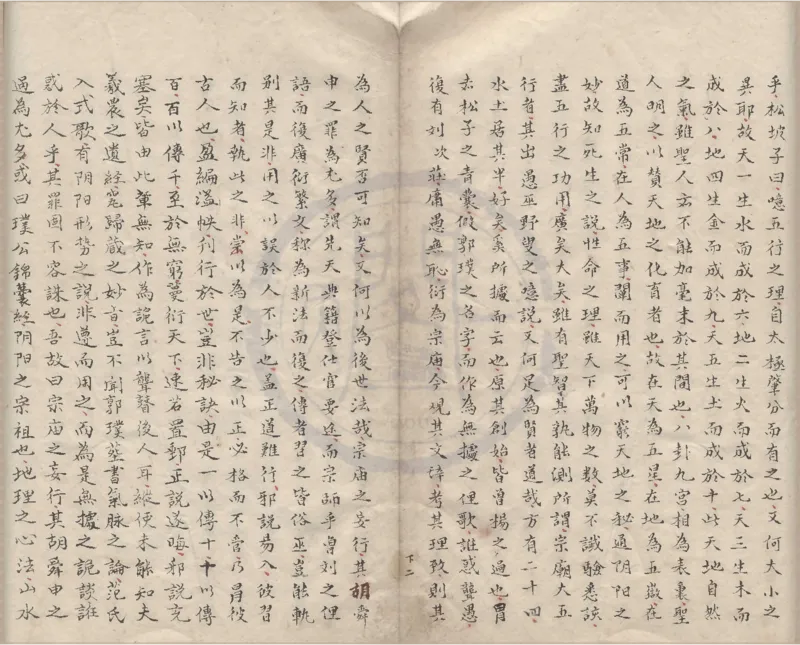 乎松坡子曰噫五行之理自太極肇分而有之也又何大小之
異耶故天一生水而成於六地二生火而成於七天三生木而
成於八地四生金而成於九天五生土而成於十此天地自然
之氣雖聖人亦不能加毫末於其間也八卦九宮相為表裏聖
人明之以贊天地之化育者也故在天為五星在地為五嶽在
道為五常在人為五事闡而用之可以窮天地之秘通阴阳之
妙故知死生之說性命之理雖天下萬物之数莫不識驗悉該
盡五行之功用廣矣大矣雖有聖智其孰能測所謂宗廟大五
行者其出愚巫野叟之噫說又何足為賢者道哉方有二十四
水土居其半好矣奚所據而云也原其創始皆曽揚之過也胃
去松子之青囊假郭璞之名字而作為無據之俚歌誰惑聾愚
後有刘次蒋庸愚無恥衍為宗庙今观其文辞考其理致則其
下二
為人之賢否可知矣又何以為後世法哉宗庙之妄行其胡舜
申之罪為尤多謂先天典籍登仕官要途而宗師乎曽刘之俚
語而後廣衍繁文称為新法而復之傳者習之皆俗巫豈能執
别其是非用之以誤於人不少也盖正道难行邪說易入彼習
而知者執此之非常以為足不告之以正必格而不肯乃肙彼
古人也盈編溢帙刊行於世豈非秘訣由是一以傳十十以傳
百百以傳千至於無窮蔓衍天下速若置郵正說遂晦邪說充
塞矣皆由此輩無知作為詭言以聾瞽後人耳縱使未能知夫
羲農之遺經寃歸蔵之妙旨豈不闻郭璞塟書氣脉之論范氏
入式歌有阴阳形势之說非遵而用之而為是無據之詭談誑
惑於人乎其罪固不容誅也吾故曰宗庙之妄行其胡舜申之
過為尤多或曰璞公錦囊經阴阳之宗祖也地理之心法山水